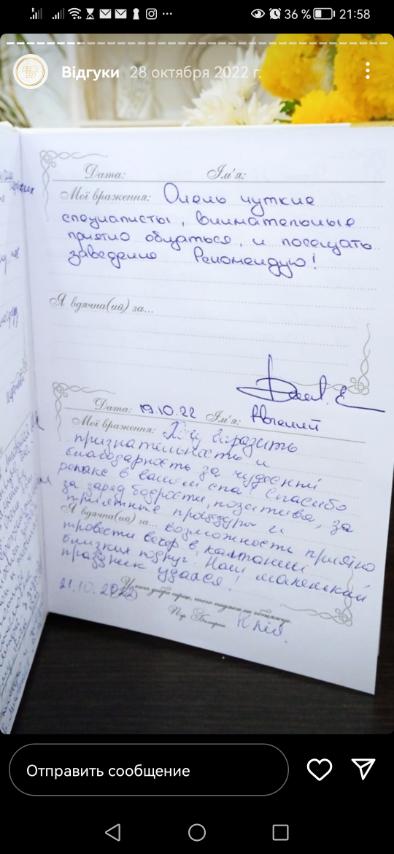 36 % 21:58
Відгуки 28 октября 2022 г.
Дата: Ім'я:
Мої враження: Очень чуткие
специалисты, внимательные
приятно общаться, и посещать
заведение Рекомендую!
Я вдячна(ий) за...
Дата: 19.10.22 Ім'я:
Мої враження: Хочу выразить
признательность и
благодарность за чудесный
релакс в вашем спа! Спасибо
за заряд бодрости, позитива, за
приятные процедуры и
Я вдячна(ий) за... возможность приятно
провести вечер в компании
близких подруг. Наш маленький
праздник удался!
21.10.2022
Юлія
Отправить сообщение